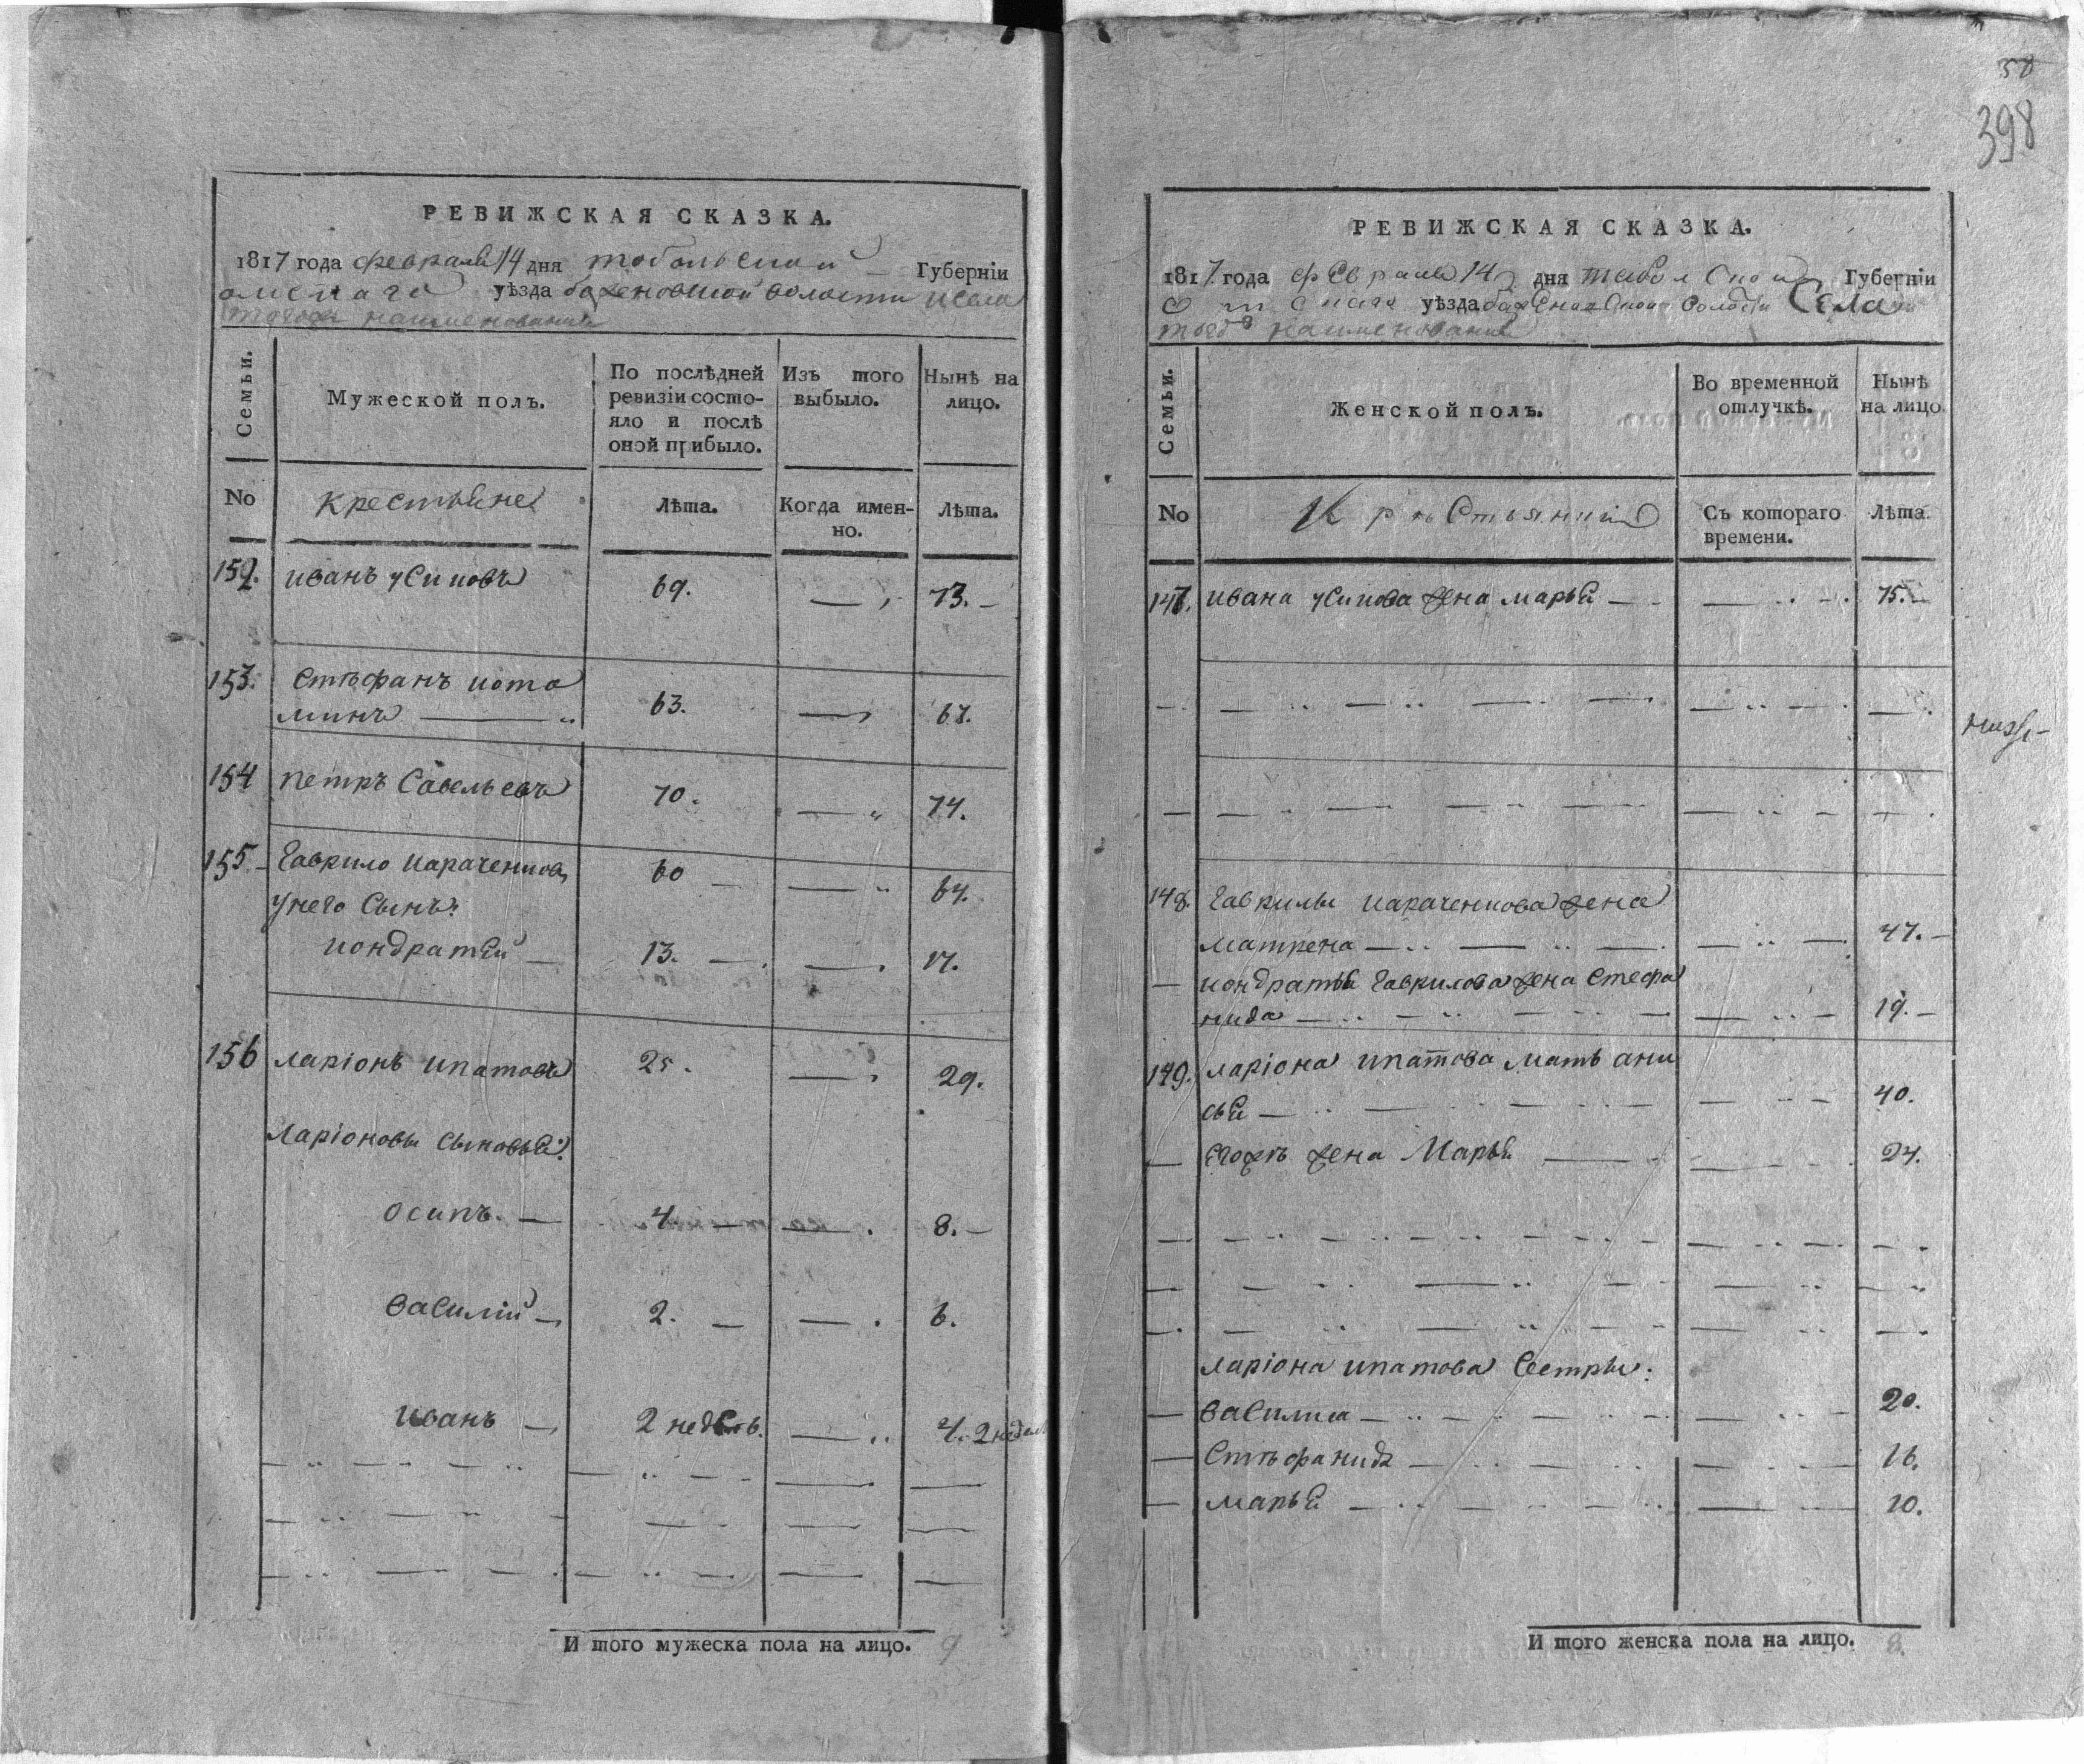 58
398
РЕВИЖСКАЯ СКАЗКА.
1817 года февраля 14 дня тобольской Губерніи
омскаго уѣзда баженовской волости и села
тогожъ наименованія
Семьи. Мужеской полъ. По послѣдней ревизіи состояло и послѣ оной прибыло. Изъ того выбыло. Нынѣ на лицо.
No крестьяне Лѣта. Когда именно. Лѣта.
152. иванъ усиковъ 69. 73.
153. Стѣфанъ пота
минъ 63. 67.
154 петръ Савельевъ 70. 74.
155 гаврило караченцов 60 64.
унего Сынъ:
кондратей 13. 17.
156 ларіонъ ипатовъ 25. 29.
ларіоновы сыновья:
осипъ. 4. 8.
василій 2. 6.
иванъ 2 недѣль. 4. 2 недель
И того мужеска пола на лицо. 9
РЕВИЖСКАЯ СКАЗКА.
1817 года февраля 14 дня тобол Ской Губерніи
омскаго уѣзда баженовской волости Села
тогоъ наименованія
Семьи. Женской полъ. Во временной отлучкѣ. Нынѣ на лицо
No Крѣстьянкій Съ котораго времени. Лѣта.
147. ивана усикова жена марья 75.
148. гаврилы караченцова жена
матрена 47.
кондратья гаврилова жена Стефа
нида 19.
149. ларіона ипатова мать ани
сья 40.
егожъ жена Марья 24.
ларіона ипатова Сестры:
василиса 20.
Стѣфанида 16.
марья 10.
И того женска пола на лицо. 8.